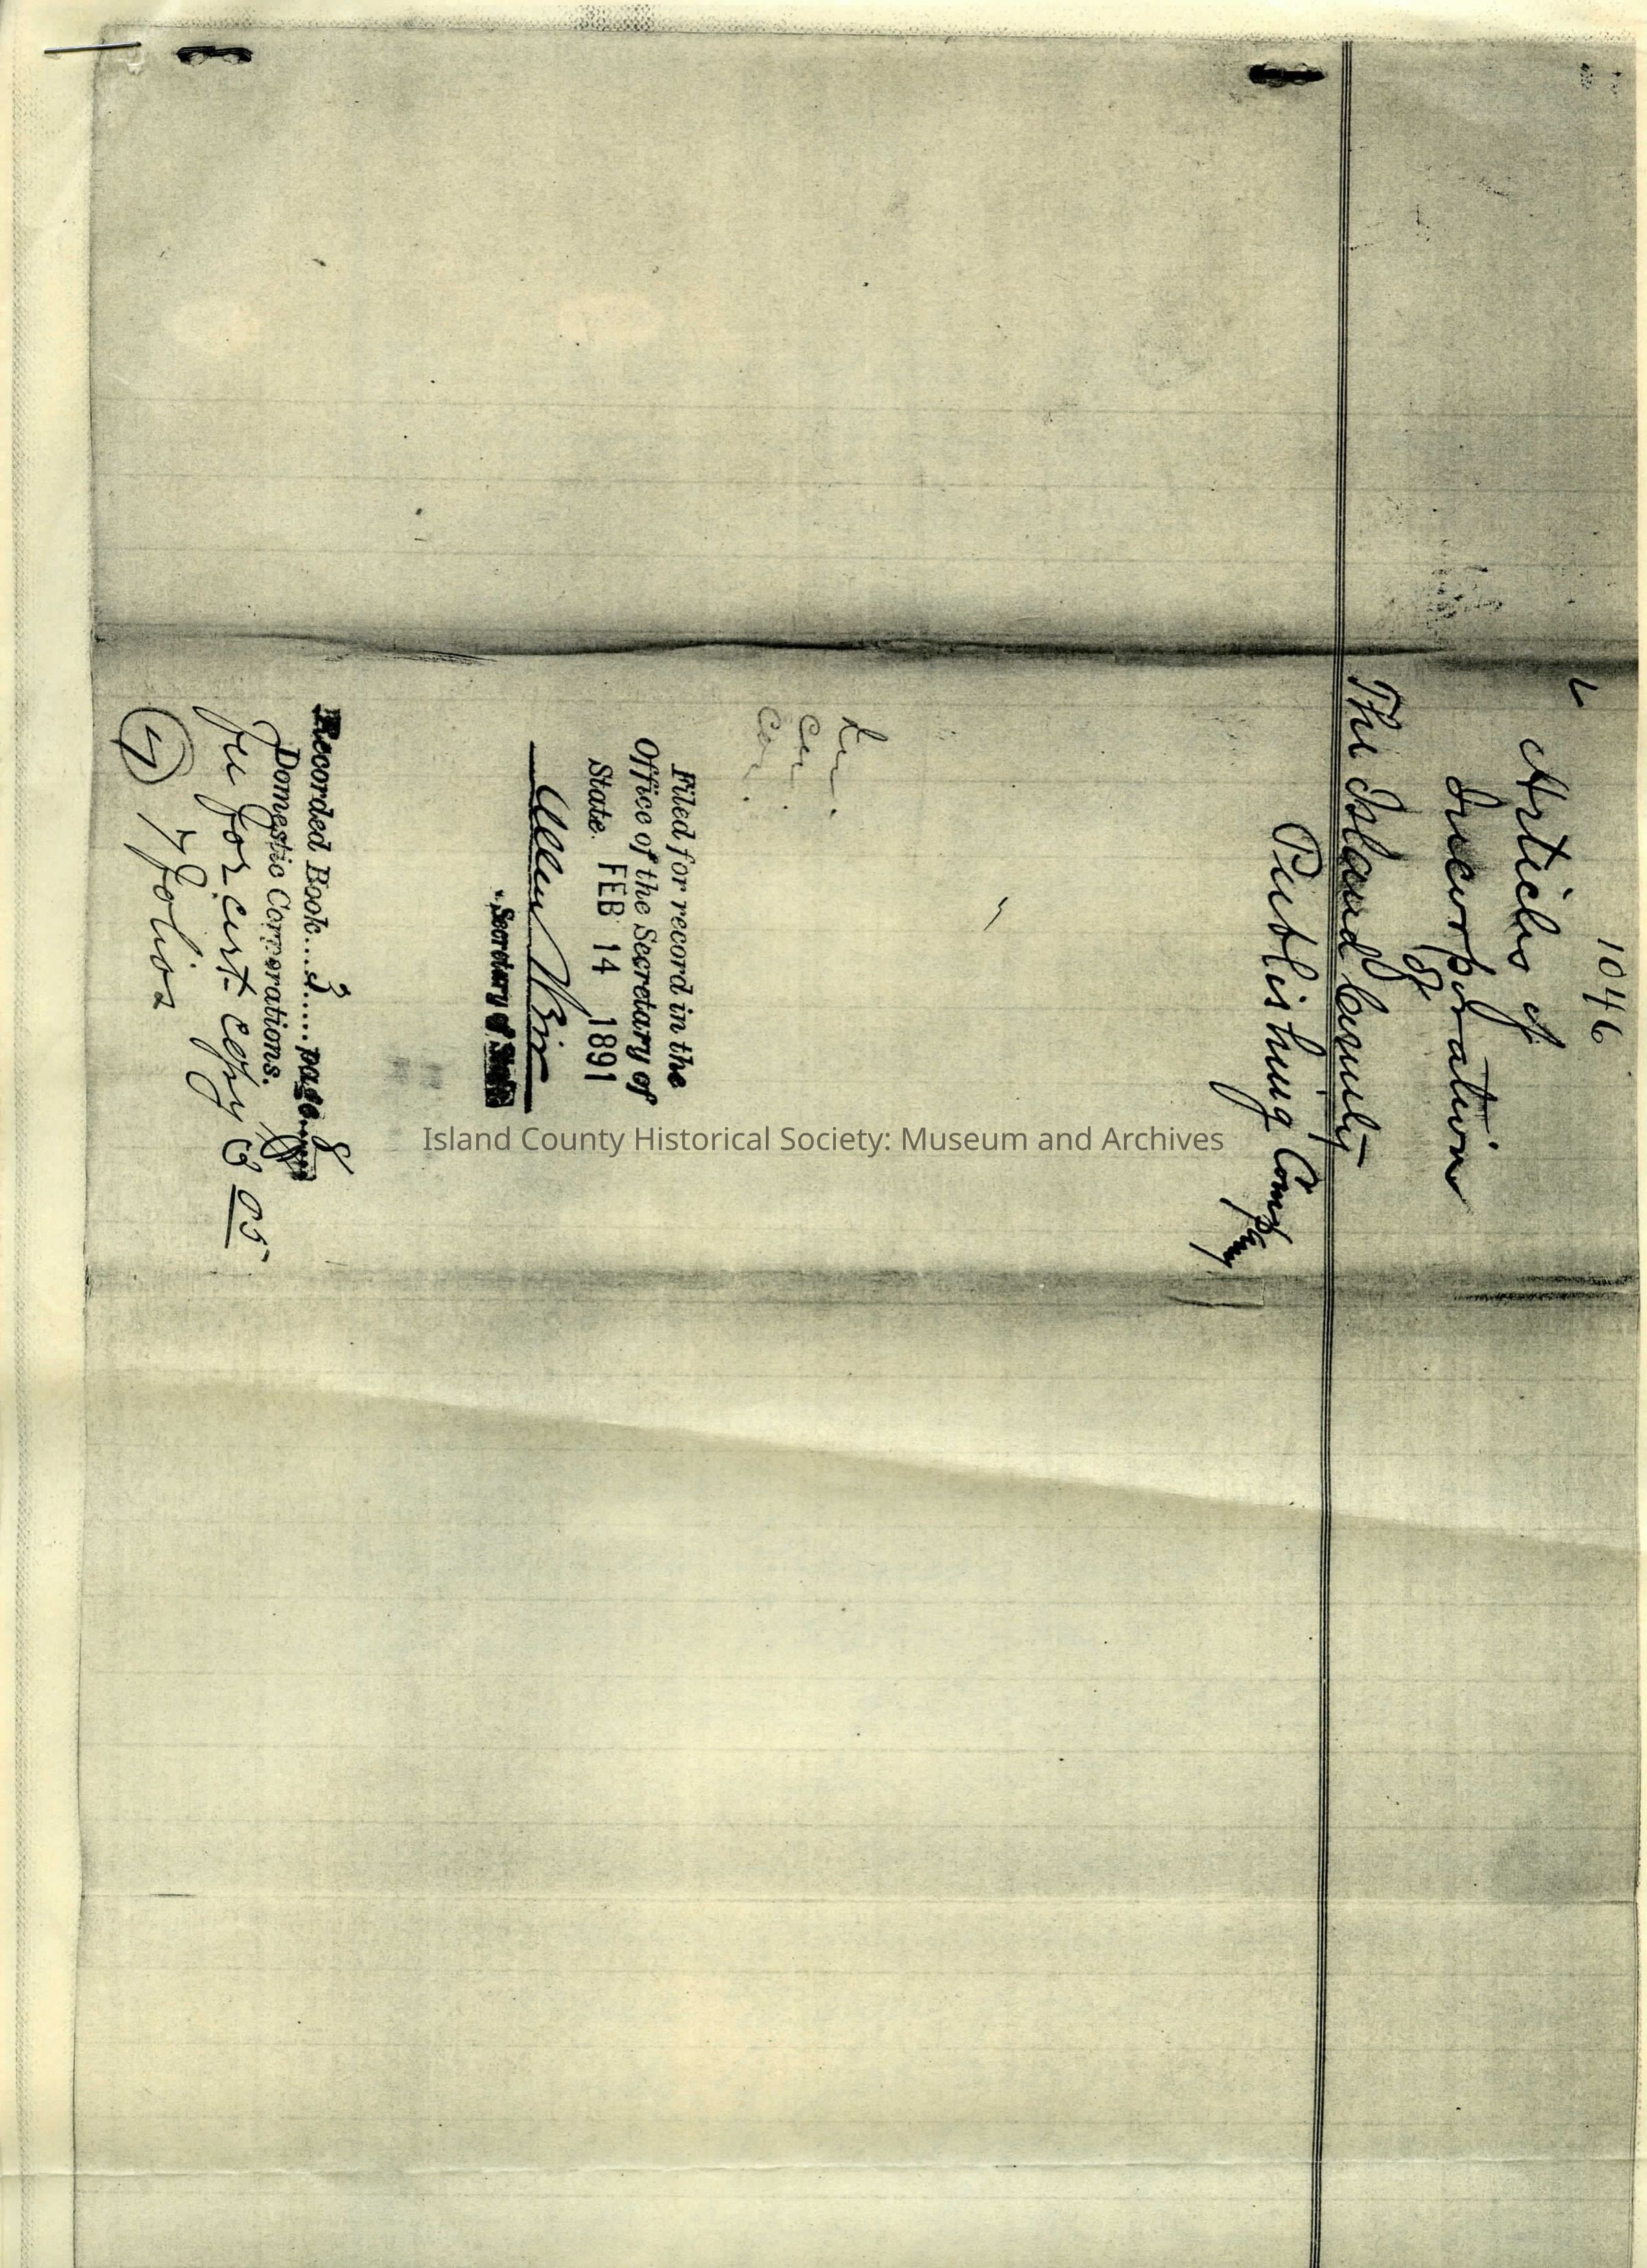 1046
Articles of
Incorporation
of
The Island County
Publishing Company
Filed for record in the
Office of the Secretary of
State. FEB 14 1891
Allen Weir
Secretary of State
Recorded Book....3.....page....8
Domestic Corporations.
fee for cert copy 3 05
7 folios
Island County Historical Society: Museum and Archives